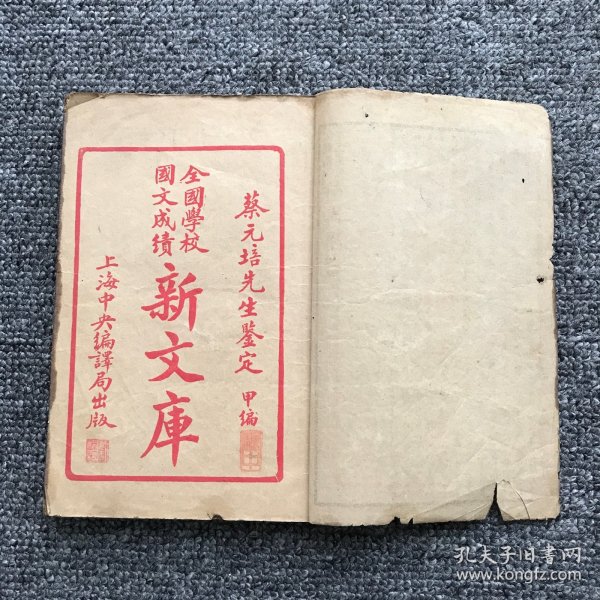 蔡元培先生鑒定 甲編
全國學校
國文成績
新文庫
上海中央編譯局出版
孔夫子旧書网
www.kongfz.com